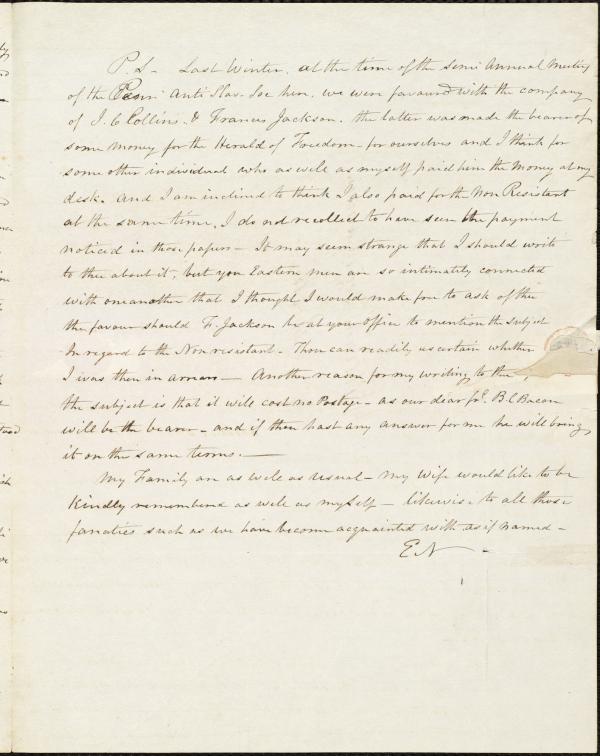 P.S— Last Winter, at the time of the Semi Annual Meeting
of the Penn Anti Slav. Soc here, we were favoured with the company
of J. C Collins. & Francis Jackson. the latter was made the bearer of
some money for the Herald of Freedom— for ourselves and I think for
some other individual who as wele as myself paid him the money at my
desk. And I am inclined to think I also paid for the Non Resistant
at the same time. I do not recollect to have seen the payment
noticed in those papers— It may seem strange that I should write
to thee about it, but you Eastern men are so intimately connected
with oneanother that I thought I would make free to ask of thee
the favour should F. Jackson be at your office to mention the subject
In regard to the Non resistant— Thou can readily ascertain whether
I was then in arrears— Another reason for my writing to thee,
the subject is that it wile cost no Postage— as our dear frd. B. C Bacon
will be the bearer— and if thee hast any answer for me he will bring
it on the same terms.—
My Family are as wele as usual— my wife would like to be
Kindly remembered as wele as myself— likewise to all those
fanatics such as we have become acquainted with as if named—
E N—